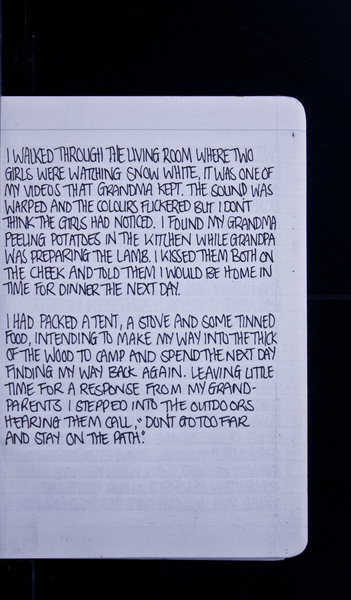 I WALKED THROUGH THE LIVING ROOM WHERE TWO
GIRLS WERE WATCHING SNOW WHITE, IT WAS ONE OF
MY VIDEOS THAT GRANDMA KEPT. THE SOUND WAS
WARPED AND THE COLOURS FLICKERED BUT I DONT
THINK THE GIRLS HAD NOTICED. I FOUND MY GRANDMA
PEELING POTATOES IN THE KITCHEN WHILE GRANDPA
WAS PREPARING THE LAMB. I KISSED THEM BOTH ON
THE CHEEK AND TOLD THEM I WOULD BE HOME IN
TIME FOR DINNER THE NEXT DAY.

I HAD PACKED A TENT, A STOVE AND SOME TINNED
FOOD, INTENDING TO MAKE MY WAY INTO THE THICK
OF THE WOOD TO CAMP AND SPEND THE NEXT DAY
FINDING MY WAY BACK AGAIN. LEAVING LITTLE
TIME FOR A RESPONSE FROM MY GRAND-
PARENTS I STEPPED INTO THE OUTDOORS
HEARING THEM CALL, "DONT GO TOO FAR
AND STAY ON THE PATH."